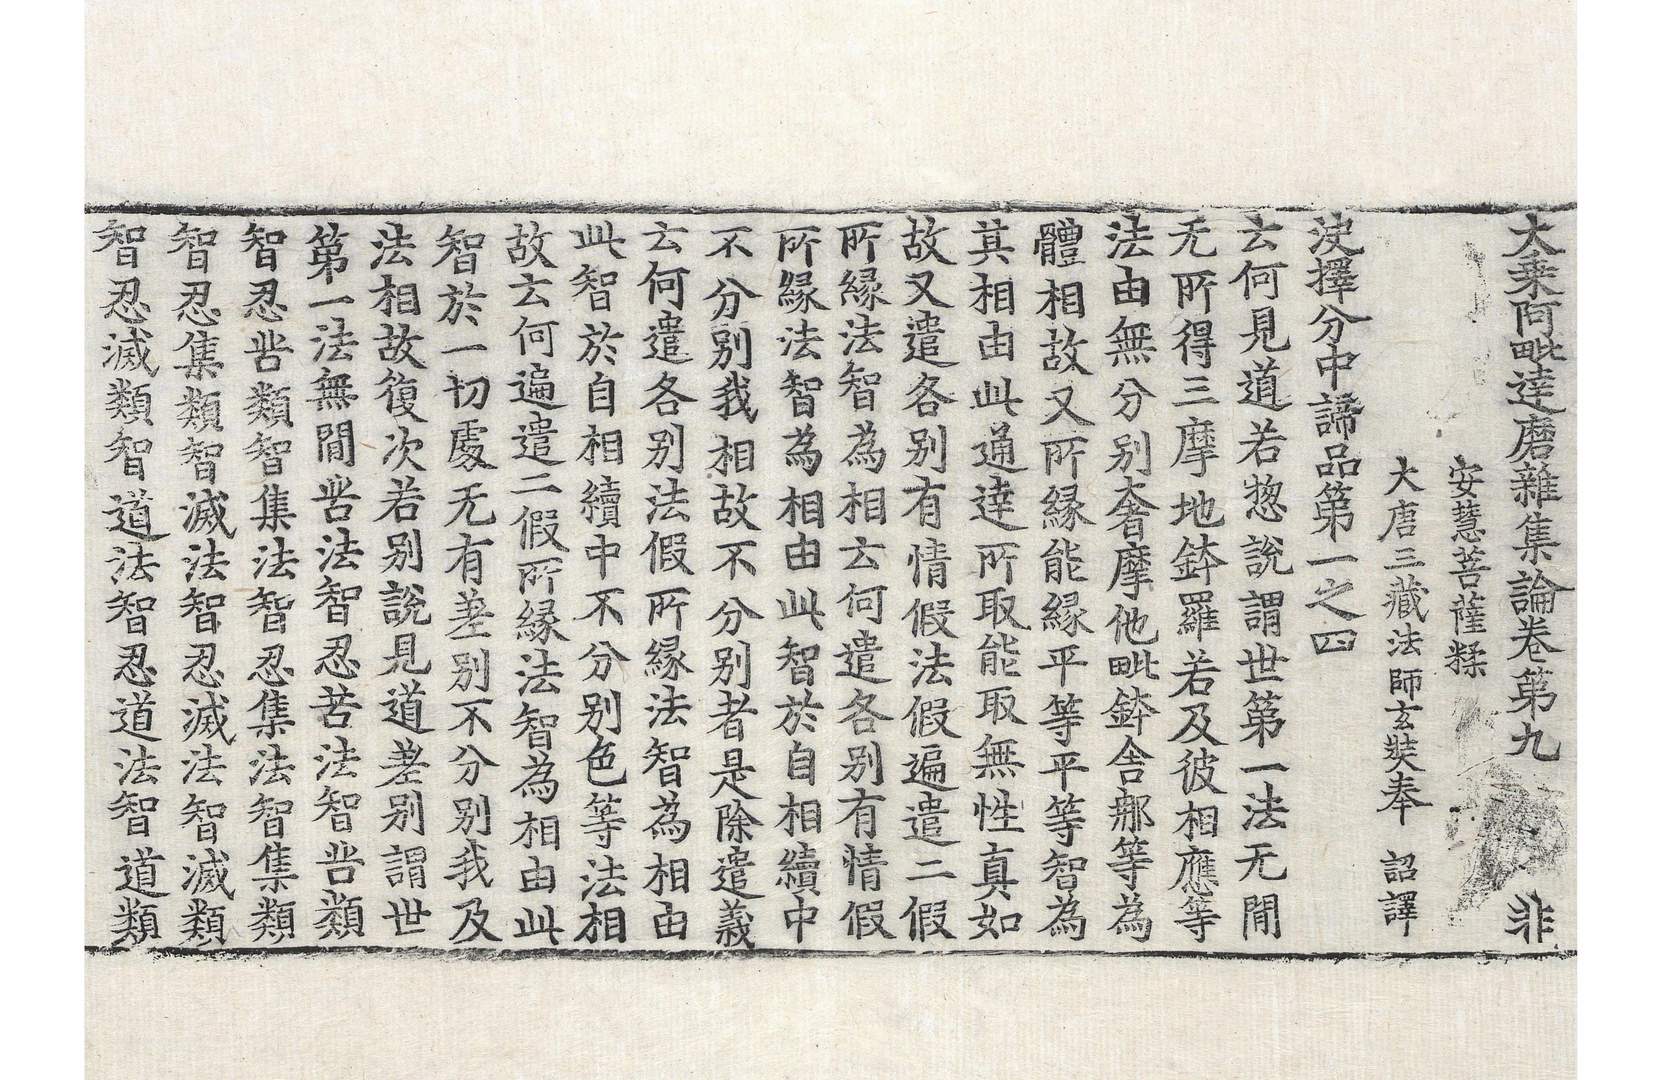 大乘阿毗達磨雜集論卷第九 非
安慧菩薩糅
大唐三藏法師玄奘奉 詔譯
決擇分中諦品第一之四
云何見道若惣說謂世第一法无閒
无所得三摩地鉢羅若及彼相應等
法由無分別奢摩他毗鉢舍那等為
體相故又所緣能緣平等平等智為
其相由此通達所取能取無性真如
故又遣各別有情假法假遍遣二假
所緣法智為相云何遣各別有情假
所緣法智為相由此智於自相續中
不分別我相故不分別者是除遣義
云何遣各別法假所緣法智為相由
此智於自相續中不分別色等法相
故云何遍遣二假所緣法智為相由此
智於一切處无有差別不分別我及
法相故復次若別說見道差別謂世
第一法無間苦法智忍苦法智苦類
智忍苦類智集法智忍集法智集類
智忍集類智滅法智忍滅法智滅類
智忍滅類智道法智忍道法智道類